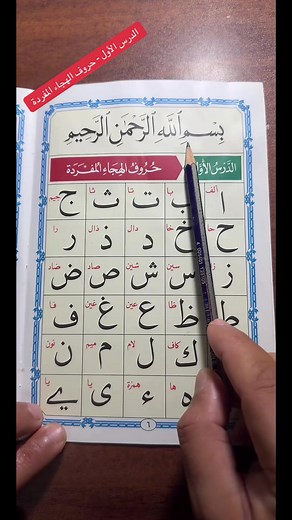 الدرس الأول - حروف الهجاء المفردة
بِسْمِ اللَّهِ الرَّحْمَنِ الرَّحِيمِ
الدَّرْسُ الأَوَّلُ حُرُوفُ الهِجَاءِ المُفْرَدَةِ
ألف با تا ثا جيم
ا ب ت ث ج
حا خا دال ذال را
ح خ د ذ ر
سين شين صاد ضاد
ز س ش ص ض
ظا عين غين فا
ط ظ ع غ ف
كاف لام ميم نون
ك ل م ن
ها همزة يا يا
ه ء ى ي
٦